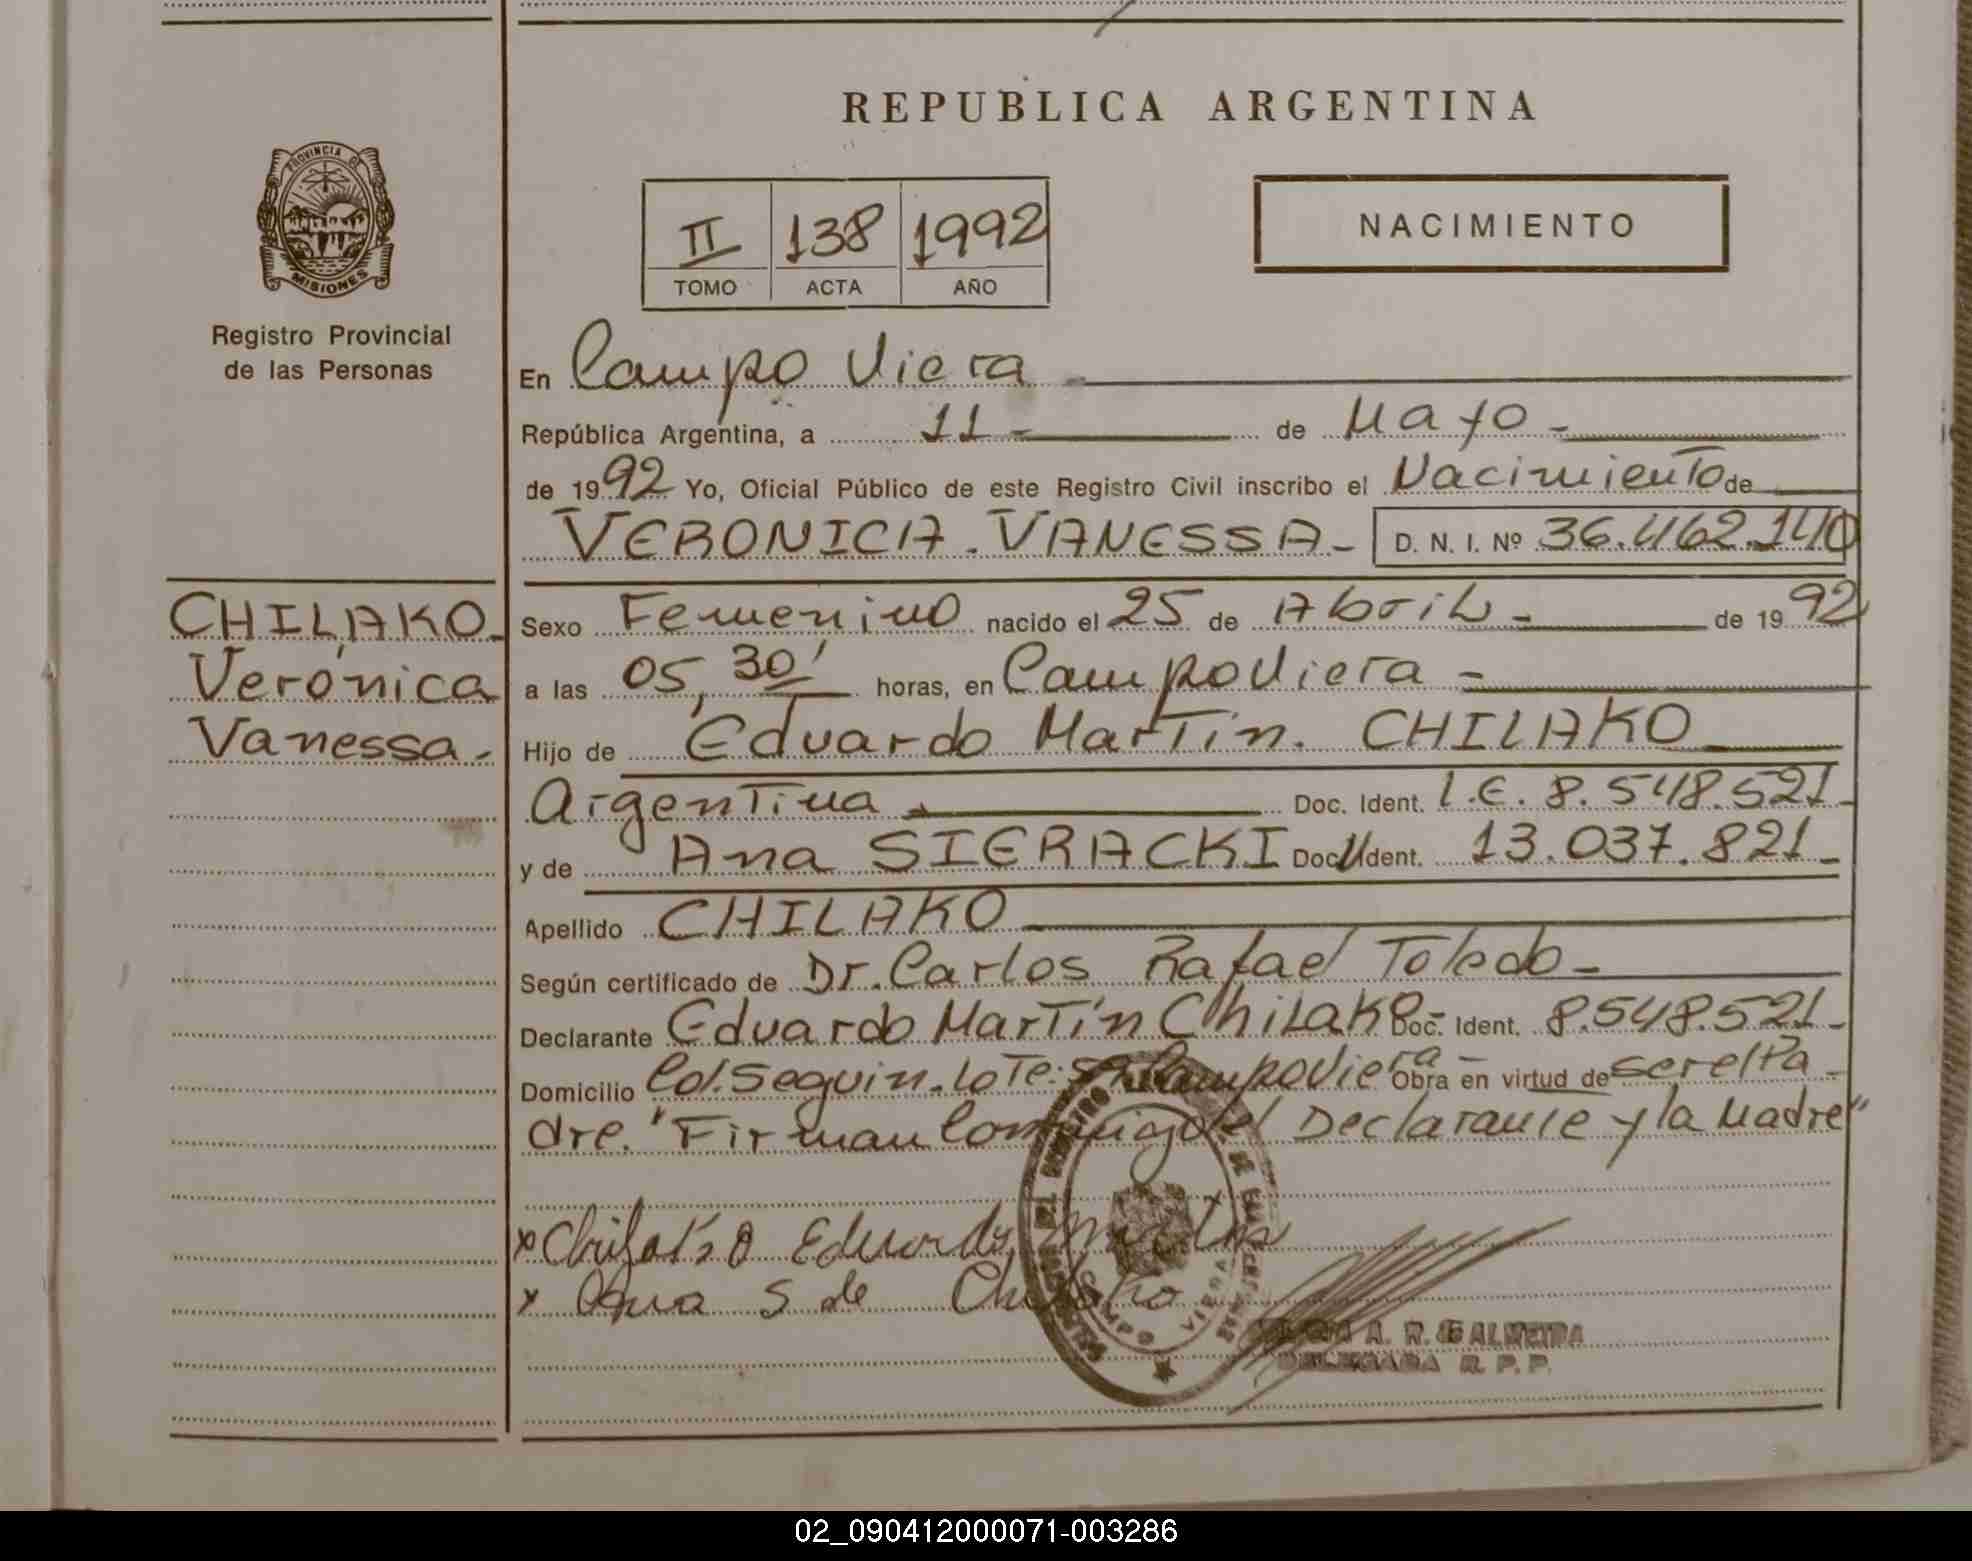 REPUBLICA ARGENTINA
PROVINCIA DE
MISIONES
Registro Provincial
de las Personas
II 138 1992
TOMO ACTA AÑO
NACIMIENTO
En Campo Viera
República Argentina, a 11 - de Mayo -
de 1992 Yo, Oficial Público de este Registro Civil inscribo el Nacimiento de
VERONICA. VANESSA - D. N. I. Nº 36.462.140
CHILAKO
Verónica
Vanessa.
Sexo Femenino nacido el 25 de Abril - de 1992
a las 05,30' horas, en Campo Viera -
Hijo de Eduardo Martín. CHILAKO
Argentina Doc. Ident. L.E. 8.548.521 -
y de Ana SIERACKI Doc. Ident. 13.037.821 -
Apellido CHILAKO
Según certificado de Dr. Carlos Rafael Toledo -
Declarante Eduardo Martín Chilako - Doc. Ident. 8.548.521 -
Domicilio Col. Seguin. Lote: Campo Viera - Obra en virtud de ser el Pa -
dre. "Firman Conmigo el Declarante y la Madre"
x Chilako Eduardo Martin
x Ana S de Chilako
CAMPO VIERA
A. R. de ALMEIDA
DELEGADA R. P. P.
02_090412000071-003286